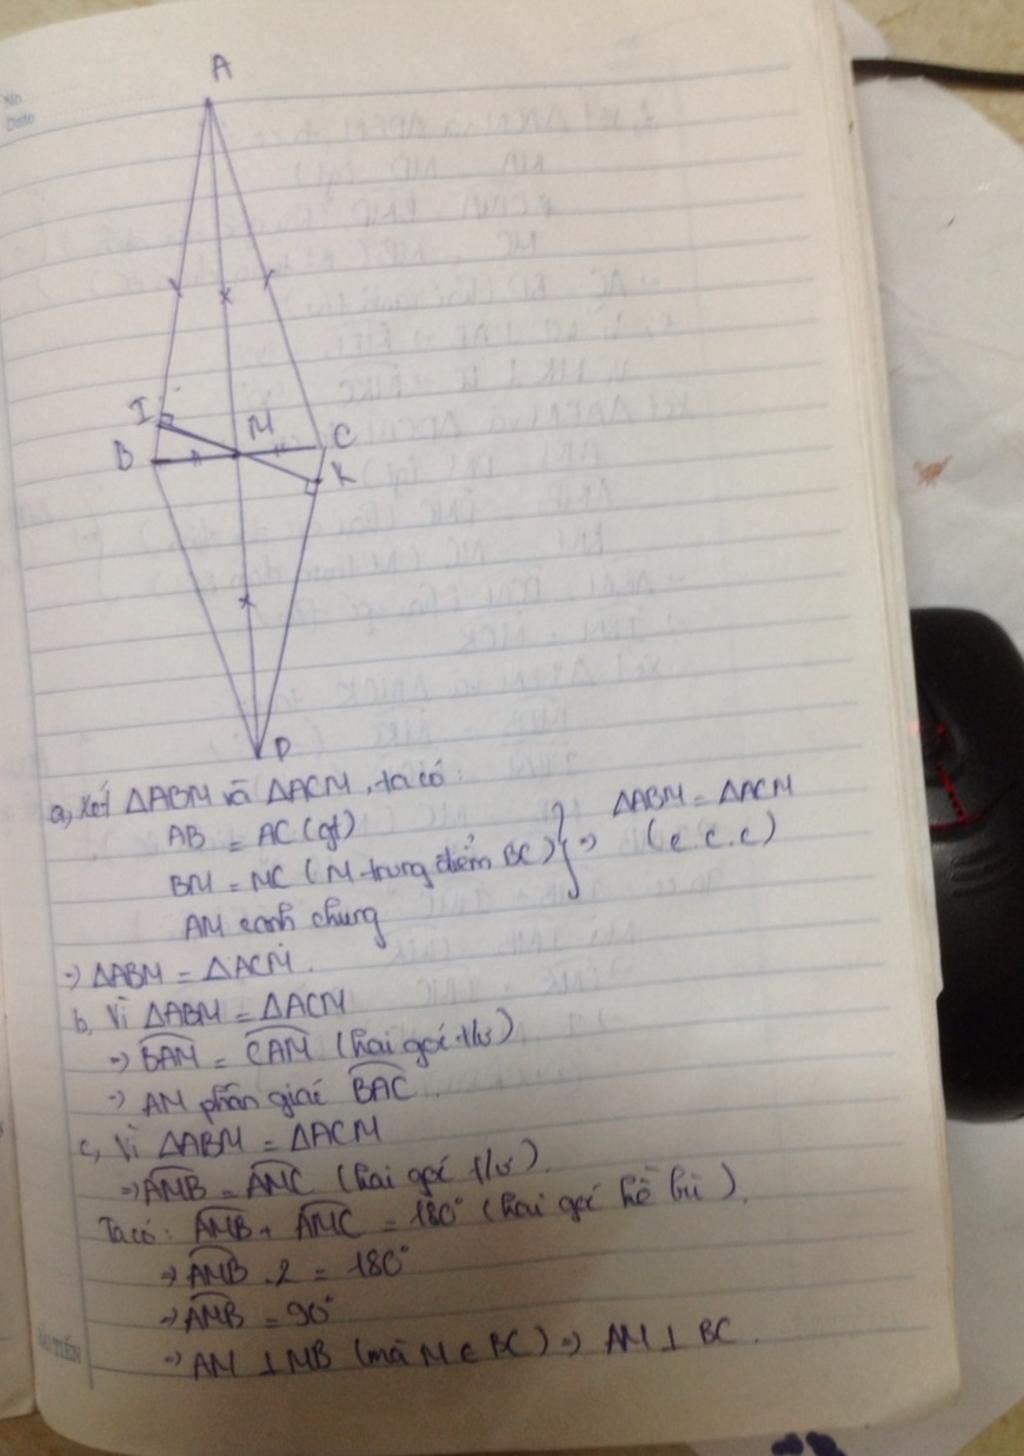 No.
Date
A
I
M
C
B
K
D
a, Xét ΔABM và ΔACM, ta có:
AB = AC (gt)
BM = MC (M trung điểm BC) } => ΔABM = ΔACM (c.c.c)
AM cạnh chung
=> ΔABM = ΔACM.
b, Vì ΔABM = ΔACM
=> BAM = CAM (hai góc t/ư)
=> AM phân giác BAC.
c, Vì ΔABM = ΔACM
=> AMB = AMC (hai góc t/ư).
Ta có: AMB + AMC = 180° (hai góc kề bù).
=> AMB . 2 = 180°
=> AMB = 90°
=> AM ⊥ MB (mà M ∈ BC) => AM ⊥ BC.
TIẾN